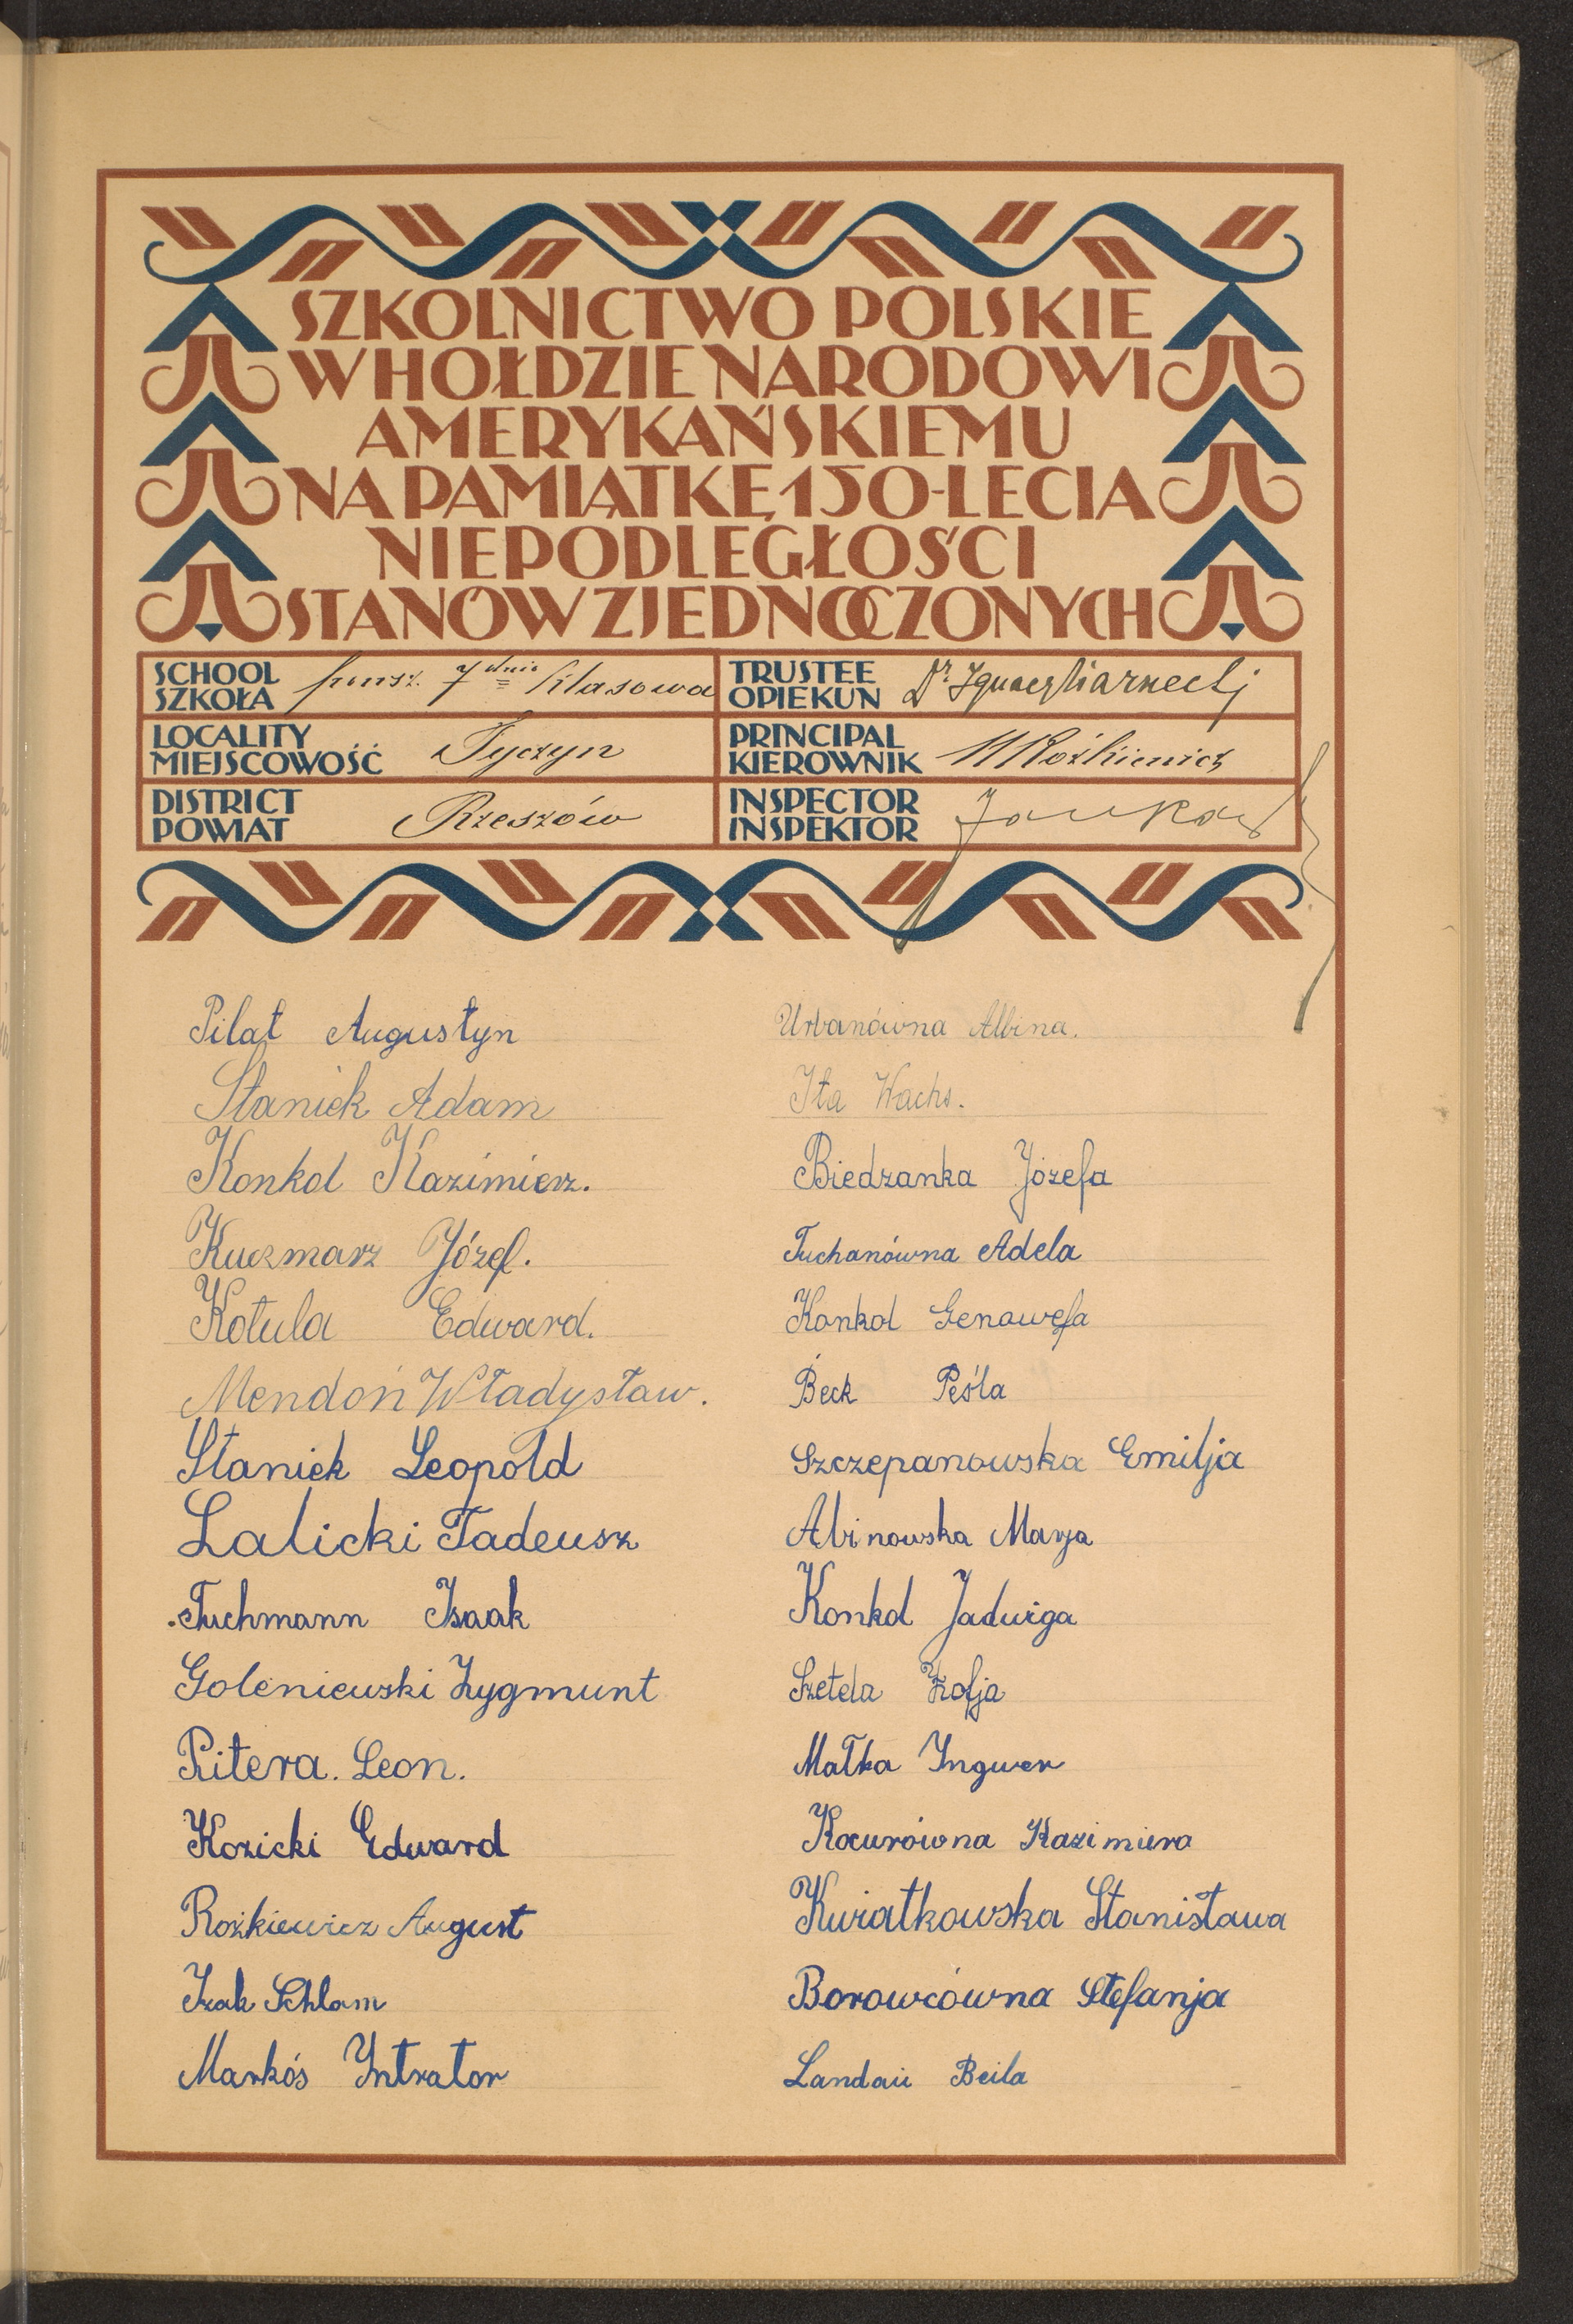 SZKOLNICTWO POLSKIE
W HOŁDZIE NARODOWI
AMERYKAŃSKIEMU
NA PAMIĄTKĘ 150-LECIA
NIEPODLEGŁOŚCI
STANÓW ZJEDNOCZONYCH
SCHOOL
SZKOŁA 7 klasowa
TRUSTEE
OPIEKUN Dr. Ignacy
LOCALITY
MIEJSCOWOŚĆ Tyczyn
PRINCIPAL
KIEROWNIK Rożkiewicz
DISTRICT
POWIAT Rzeszów
INSPECTOR
INSPEKTOR
Pilat Augustyn
Staniek Adam
Konkol Kazimierz.
Kuczmarz Józef.
Kotula Edward.
Mendoń Władysław.
Staniek Leopold
Lalicki Tadeusz
Tuchmann Isaak
Goleniewski Zygmunt
Ritera. Leon.
Kozicki Edward
Rożkiewicz August
Izak Schlam
Markós Yntrator
Urbanówna Albina.
Ita Wachs.
Biedzanka Józefa
Tuchanówna Adela
Konkol Genowefa
Beck Peśla
Szczepanowska Emilja
Abinowska Marja
Konkol Jadwiga
Szetela Zofja
Małka Yngwer
Kocurówna Kazimiera
Kwiatkowska Stanisława
Borowcówna Stefanja
Landau Beila